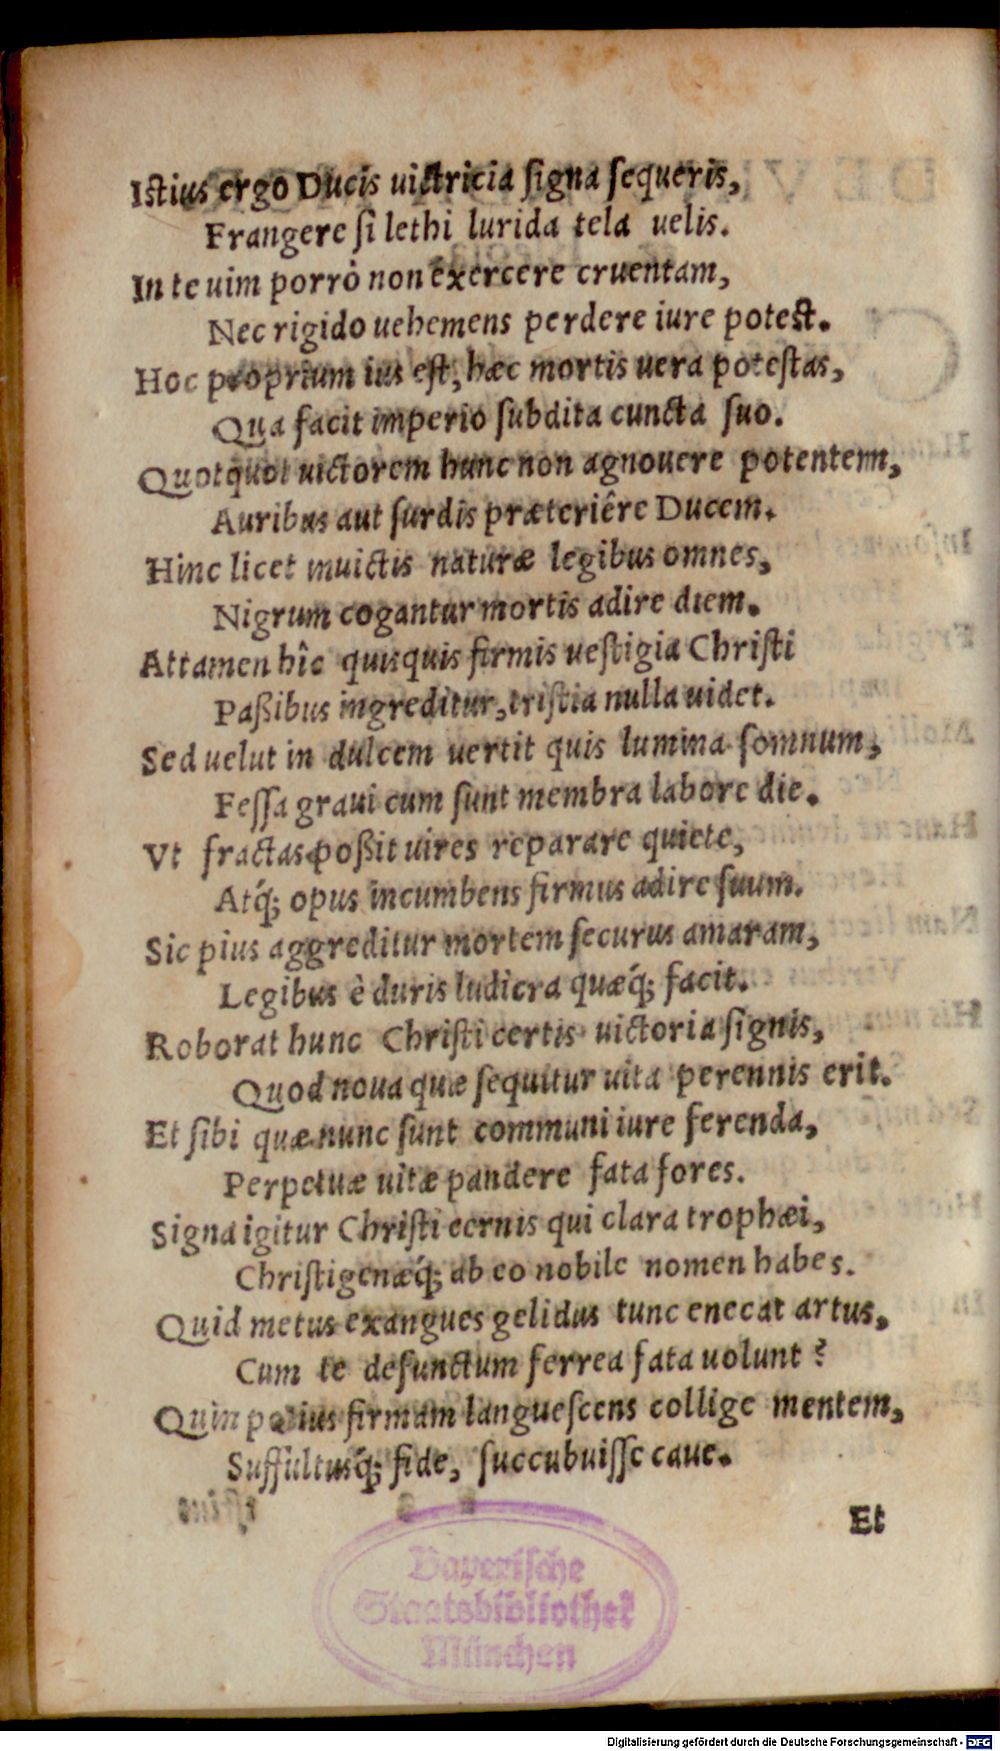 Istius ergo Ducis uictricia ſigna ſequeris,
Frangere ſi lethi lurida tela uelis.
In te uim porrò non exercere cruentam,
Nec rigido uehemens perdere iure poteſt.
Hoc proprium ius eſt, hæc mortis uera poteſtas,
Qua facit imperio ſubdita cuncta ſuo.
Quotquot uictorem hunc non agnouere potentem,
Auribus aut ſurdis præteriêre Ducem.
Hinc licet inuictis naturæ legibus omnes,
Nigrum cogantur mortis adire diem.
Attamen hîc quiſquis firmis ueſtigia Chriſti
Paßibus ingreditur, triſtia nulla uidet.
Sed uelut in dulcem uertit quis lumina ſomnum,
Feſſa graui cum ſunt membra labore die.
Vt fractas poßit uires reparare quiete,
Atq́; opus incumbens firmus adire ſuum.
Sic pius aggreditur mortem ſecurus amaram,
Legibus è duris ludicra quæq́; facit.
Roborat hunc Chriſti certis uictoria ſignis,
Quod noua quæ ſequitur uita perennis erit.
Et ſibi quæ nunc ſunt communi iure ferenda,
Perpetuæ uitæ pandere fata fores.
Signa igitur Chriſti cernis qui clara trophæi,
Chriſtigenæq́; ab eo nobile nomen habes.
Quid metus exangues gelidus tunc enecat artus,
Cum te defunctum ferrea fata uolunt?
Quin potius firmam langueſcens collige mentem,
Suffultusq́; fide, ſuccubuiſſe caue.
Et
Bayerische
Staatsbibliothek
München
Digitalisierung gefördert durch die Deutsche Forschungsgemeinschaft - DFG